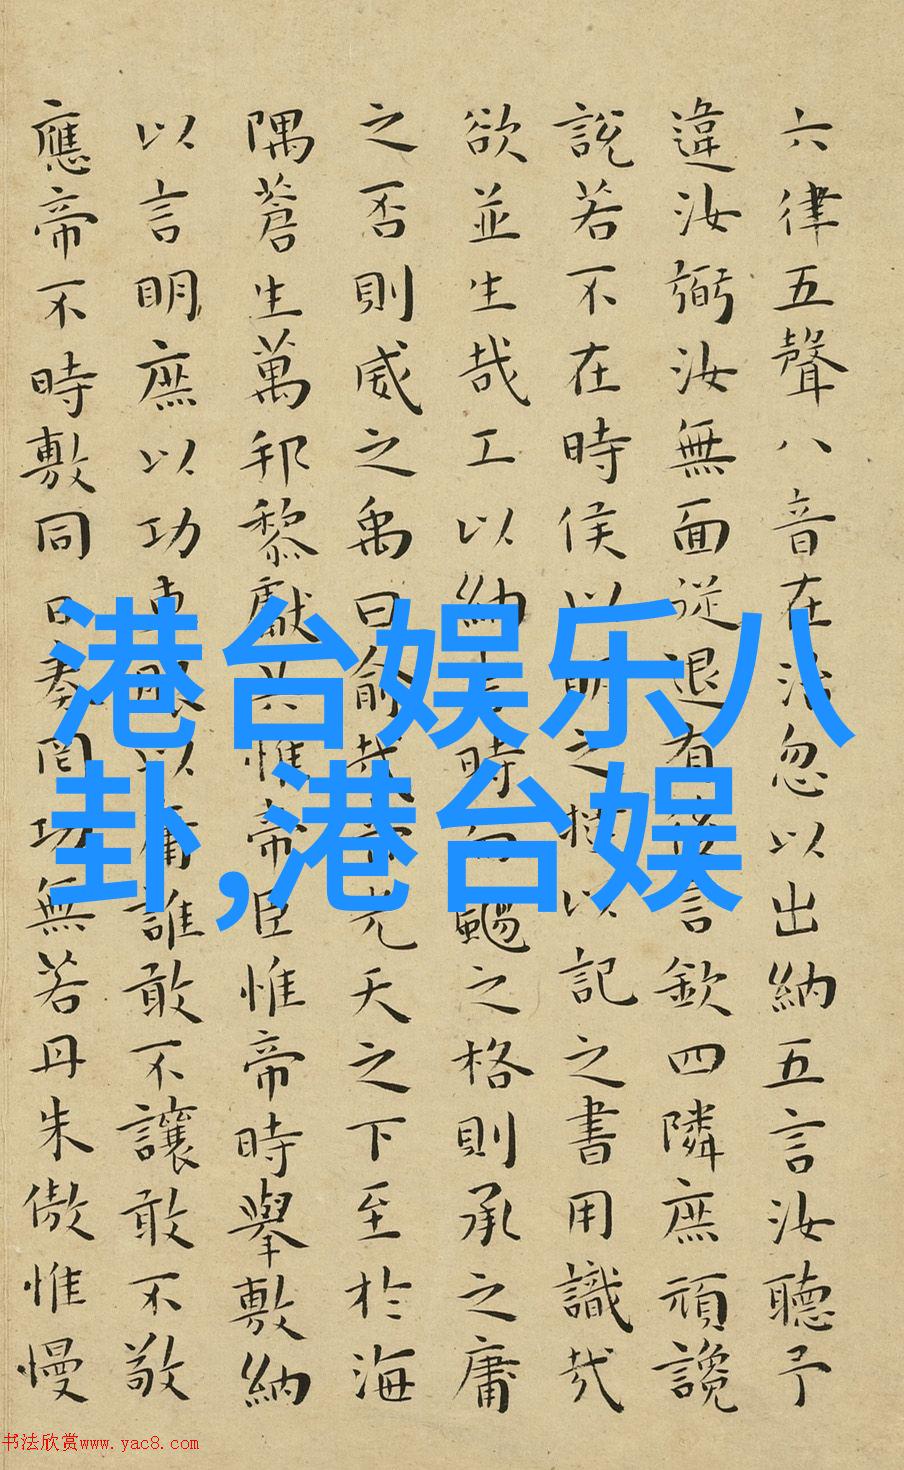 六律五聲八音在治忽以出納五言汝聽予
違汝弼汝無面從退有後言欽四隣庶頑讒
說若不在時侯以明之撻以記之書用識哉
欲並生哉工以納言時而颺之格則承之庸
之否則威之禹曰俞哉帝光天之下至於海
隅蒼生萬邦黎獻共惟帝臣惟帝時舉敷納
以言明庶以功車服以庸誰敢不讓敢不敬
應帝不時敷同日奏罔功無若丹朱傲惟慢
港台娱乐八
卦,港台娱
书法欣赏www.yac8.com